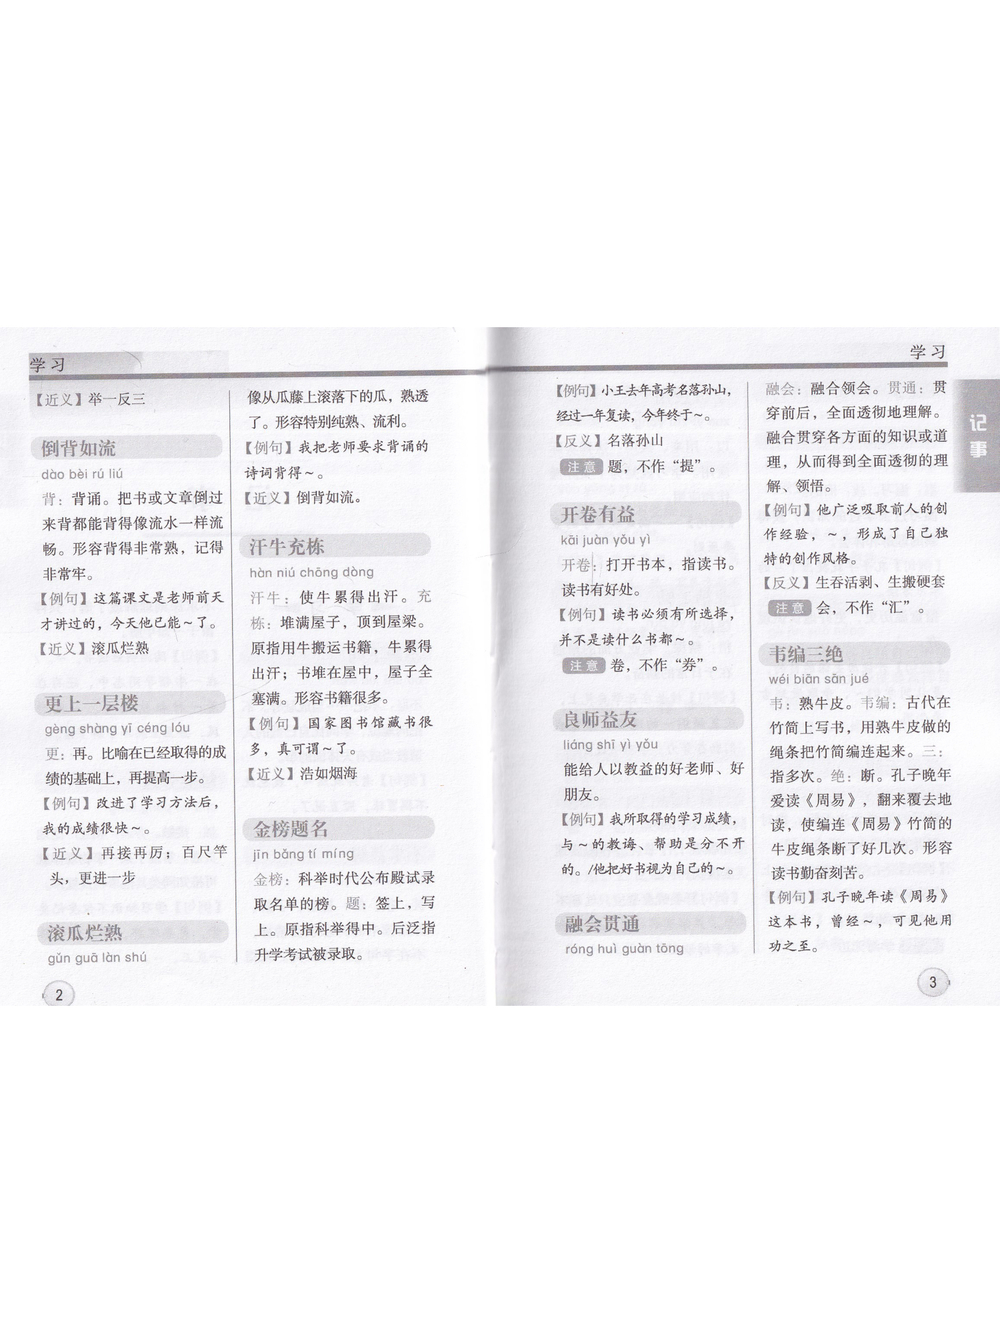 学习
【近义】举一反三
倒背如流
dào bèi rú liú
背：背诵。把书或文章倒过
来背都能背得像流水一样流
畅。形容背得非常熟，记得
非常牢。
【例句】这篇课文是老师前天
才讲过的，今天他已能～了。
【近义】滚瓜烂熟
更上一层楼
gèng shàng yī céng lóu
更：再。比喻在已经取得的成
绩的基础上，再提高一步。
【例句】改进了学习方法后，
我的成绩很快～。
【近义】再接再厉；百尺竿
头，更进一步
滚瓜烂熟
gǔn guā làn shú
像从瓜藤上滚落下的瓜，熟透
了。形容特别纯熟、流利。
【例句】我把老师要求背诵的
诗词背得～。
【近义】倒背如流。
汗牛充栋
hàn niú chōng dòng
汗牛：使牛累得出汗。充
栋：堆满屋子，顶到屋梁。
原指用牛搬运书籍，牛累得
出汗；书堆在屋中，屋子全
塞满。形容书籍很多。
【例句】国家图书馆藏书很
多，真可谓～了。
【近义】浩如烟海
金榜题名
jīn bǎng tí míng
金榜：科举时代公布殿试录
取名单的榜。题：签上，写
上。原指科举得中。后泛指
升学考试被录取。
2
学习
【例句】小王去年高考名落孙山，
经过一年复读，今年终于～。
【反义】名落孙山
注意 题，不作“提”。
开卷有益
kāi juàn yǒu yì
开卷：打开书本，指读书。
读书有好处。
【例句】读书必须有所选择，
并不是读什么书都～。
注意 卷，不作“券”。
良师益友
liáng shī yì yǒu
能给人以教益的好老师、好
朋友。
【例句】我所取得的学习成绩，
与～的教诲、帮助是分不开
的。/他把好书视为自己的～。
融会贯通
róng huì guàn tōng
融会：融合领会。贯通：贯
穿前后，全面透彻地理解。
融合贯穿各方面的知识或道
理，从而得到全面透彻的理
解、领悟。
【例句】他广泛吸取前人的创
作经验，～，形成了自己独
特的创作风格。
【反义】生吞活剥、生搬硬套
注意 会，不作“汇”。
韦编三绝
wéi biān sān jué
韦：熟牛皮。韦编：古代在
竹简上写书，用熟牛皮做的
绳条把竹简编连起来。三：
指多次。绝：断。孔子晚年
爱读《周易》，翻来覆去地
读，使编连《周易》竹简的
牛皮绳条断了好几次。形容
读书勤奋刻苦。
【例句】孔子晚年读《周易》
这本书，曾经～，可见他用
功之至。
记事
3